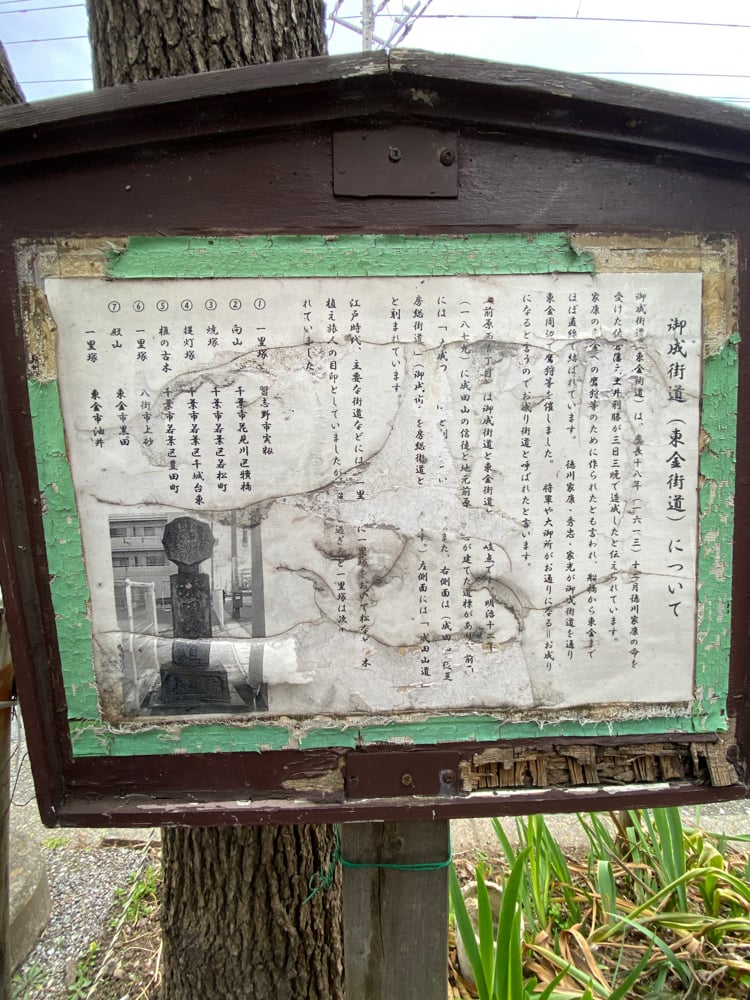 御成街道（東金街道）について
御成街道（東金街道）は、慶長十八年（一六一三）十二月徳川家康の命を
受けた佐倉藩主土井利勝が三日三晩で造成したと伝えられています。
家康の東金への鷹狩等のために作られたとも言われ、船橋から東金まで
ほぼ直線で結ばれています。 徳川家康・秀忠・家光が御成街道を通り
東金周辺で鷹狩等を催しました。 将軍や大御所がお通りになる＝お成り
になるというのでお成り街道と呼ばれたと言います。
前原 丁目）は御成街道と東金街道 岐点です。明治十二年
（一八七九）に成田山の信徒と地元前原 が建てた道標があり、前
には「 成 」 また、右側面は「成田 道
房総街道」「御成街 を房総街道と 」左側面には「成田山道」
と刻まれています
江戸時代、主要な街道などには一里 に一里塚 松な 木
植え旅人の目印としていましたが 過ぎ と一里塚は次
れていました。
① 一里塚 習志野市実籾
② 向山 千葉市花見川区犢橋
③ 焼塚 千葉市若葉区若松町
④ 提灯塚 千葉市若葉区千城台東
⑤ 椎の古木 千葉市若葉区豊田町
⑥ 一里塚 八街市上砂
⑦ 殿山 東金市黒田
一里塚 東金市油井